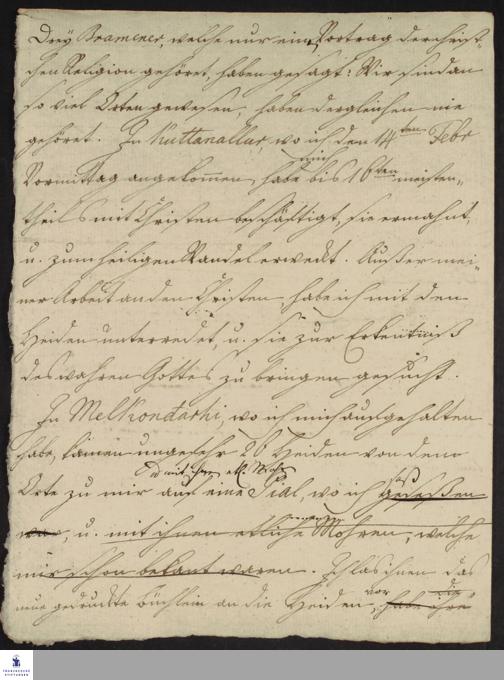 Drey Bramener, welche nur einen Vortrag der christ-
chen Religion gehöret, haben gesagt: Wir sind an
so viel Orten gewesen, haben dergleichen nie
gehöret. In Kuttanallur, wo ich den 14ten Febr
Vormittag angekommen, habe mich bis 16ten meisten-
theils mit Christen beschäftigt, sie ermahnt,
u. zum heiligen Wandel erweckt. Außer mei-
ner Arbeit an den Christen, habe ich mit den
Heiden unterredet, u. sie zur Erkentniß
des wahren Gottes zu bringen gesucht.
In Melkondarhi, wo ich mich aufgehalten
habe, kamen ungefehr 20 Heiden von dem
Orte zu mir auf eine Pial, wo ich saß gesessen
war, u. mit ihnen etliche Mohren, welche
mir schon bekant waren. Ich las ihnen das
neue gedruckte Büchlein an die Heiden vor, habe ihre
FRANCKESCHE
STIFTUNGEN